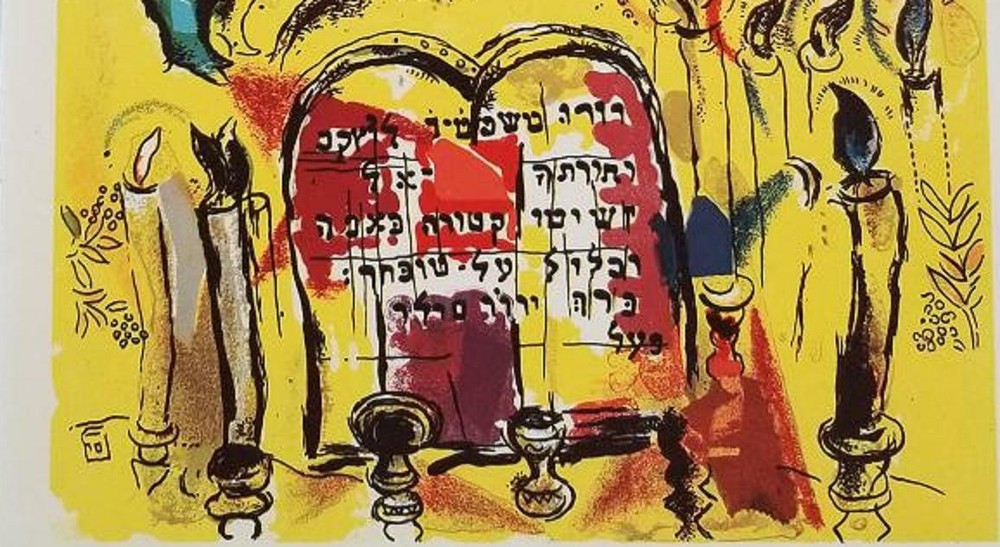 יורו משפטיך ליעקב
ותורתך
ישימו קטורה באפך
וכליל על־מזבחך:
ברך יהוה
פעל